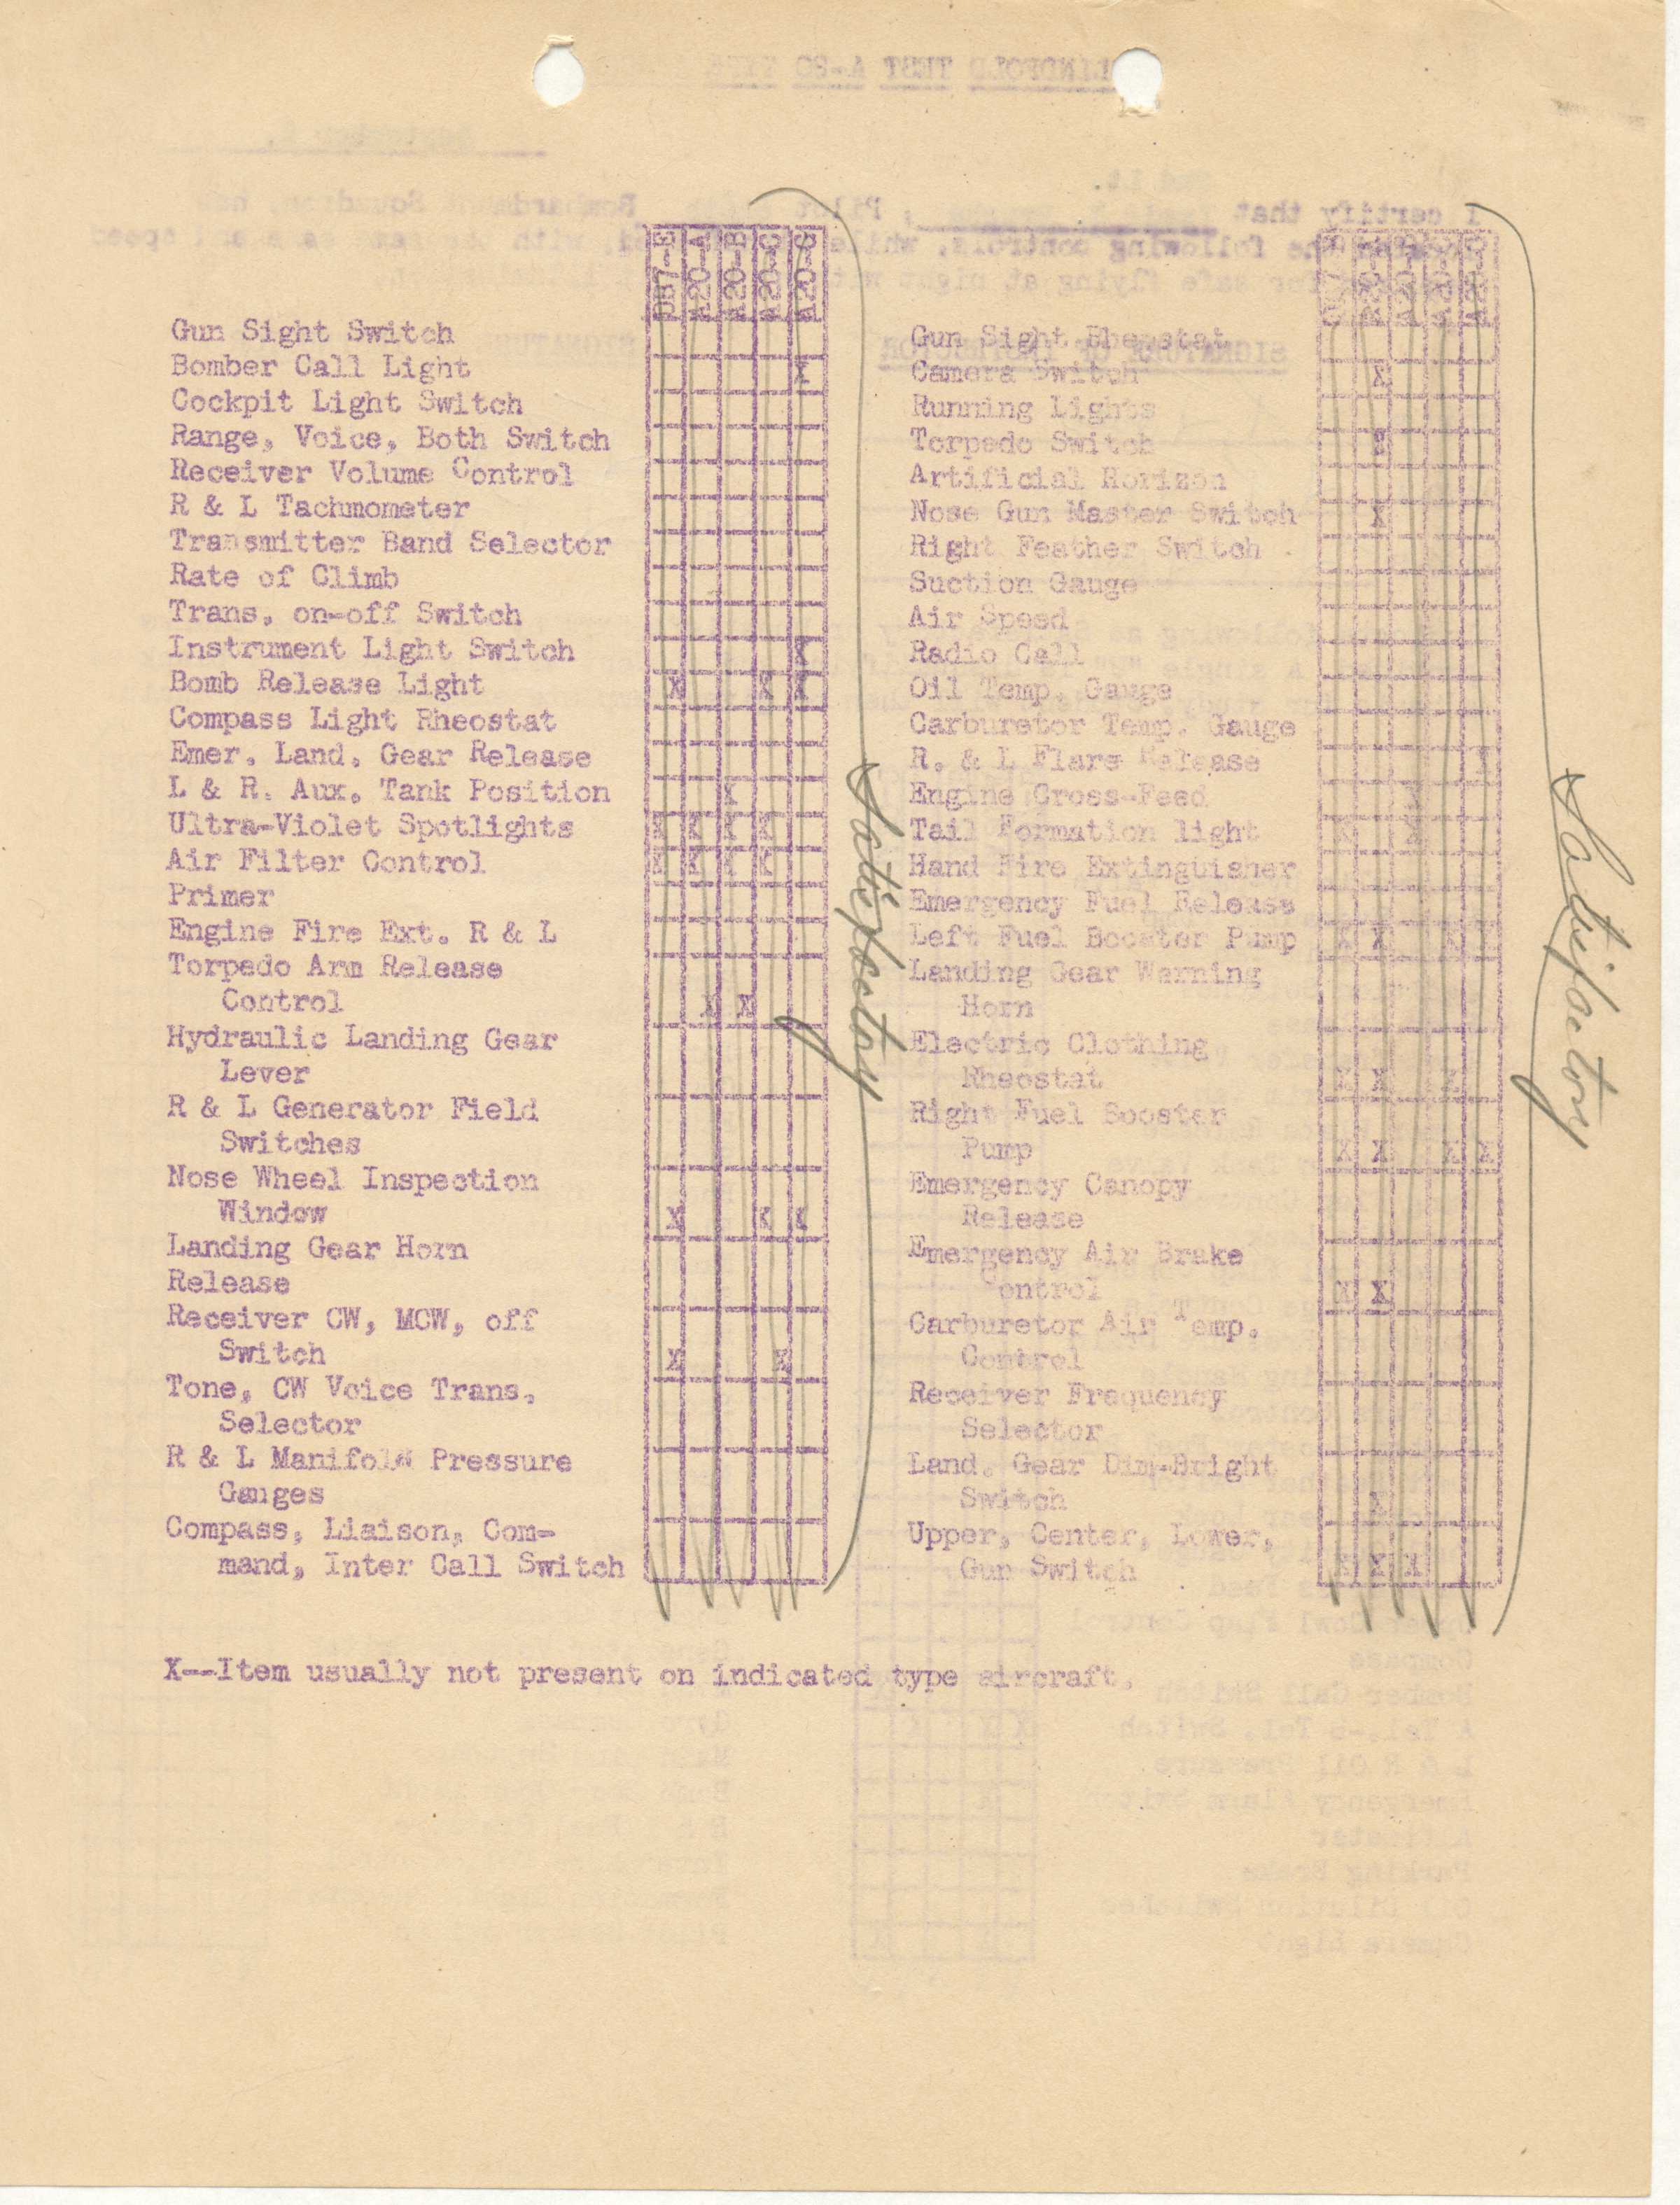 DB7-B A20-A A20-B A20-C A20-G
Gun Sight Switch
Bomber Call Light X
Cockpit Light Switch
Range, Voice, Both Switch
Receiver Volume Control
R & L Tachmometer
Transmitter Band Selector
Rate of Climb
Trans, on-off Switch
Instrument Light Switch X
Bomb Release Light X X X
Compass Light Rheostat
Emer. Land. Gear Release
L & R. Aux. Tank Position X
Ultra-Violet Spotlights X X X X
Air Filter Control X X X X
Primer
Engine Fire Ext. R & L
Torpedo Arm Release
Control X X
Hydraulic Landing Gear
Lever
R & L Generator Field
Switches
Nose Wheel Inspection
Window X X X
Landing Gear Horn
Release
Receiver CW, MCW, off
Switch X X
Tone, CW Voice Trans.
Selector
R & L Manifold Pressure
Gauges
Compass, Liaison, Com-
mand, Inter Call Switch
Satisfactory
Gun Sight Rheostat
Camera Switch X
Running Lights
Torpedo Switch X
Artificial Horizon
Nose Gun Master Switch X
Right Feather Switch
Suction Gauge
Air Speed
Radio Call
Oil Temp. Gauge
Carburetor Temp. Gauge
R. & L Flare Release X
Engine Cross-Feed
Tail Formation light X X
Hand Fire Extinguisher
Emergency Fuel Release
Left Fuel Booster Pump X X X X
Landing Gear Warning
Horn
Electric Clothing
Rheostat X X X
Right Fuel Booster
Pump X X X X
Emergency Canopy
Release
Emergency Air Brake
Control X X
Carburetor Air Temp.
Control
Receiver Frequency
Selector
Land. Gear Dim-Bright
Switch X
Upper, Center, Lower,
Gun Switch X X X
Satisfactory
X--Item usually not present on indicated type aircraft.